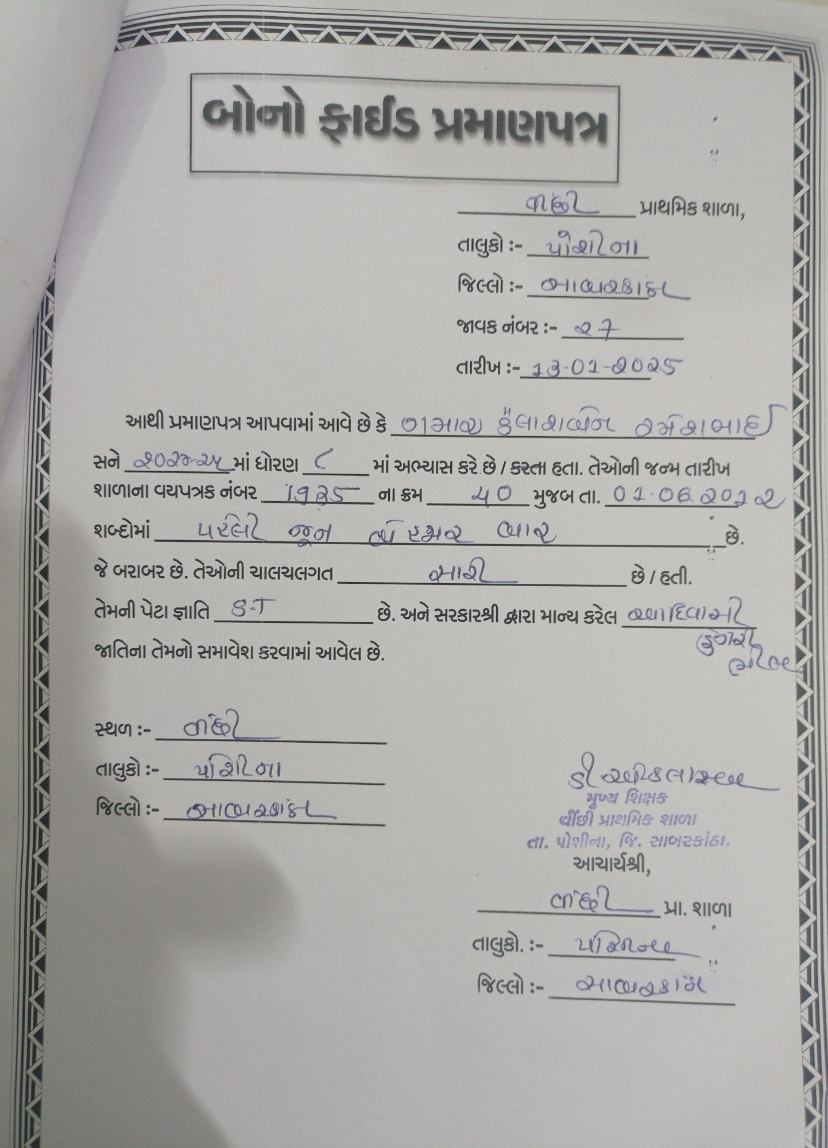 બોનો ફાઈડ પ્રમાણપત્ર
વીંછી પ્રાથમિક શાળા,
તાલુકો :- પોશીના
જિલ્લો :- સાબરકાંઠા
જાવક નંબર :- ૨7
તારીખ :- 13-01-2025
આથી પ્રમાણપત્ર આપવામાં આવે છે કે ગમાર કૈલાશબેન રમેશભાઈ
સને ૨૦૨૪-૨૫ માં ધોરણ ૮ માં અભ્યાસ કરે છે / કરતા હતા. તેઓની જન્મ તારીખ
શાળાના વયપત્રક નંબર 1935 ના ક્રમ 40 મુજબ તા. 01.06.2012
શબ્દોમાં પહેલી જૂન બે હજાર બાર છે.
જે બરાબર છે. તેઓની ચાલચલગત સારી છે / હતી.
તેમની પેટા જ્ઞાતિ S.T છે. અને સરકારશ્રી દ્વારા માન્ય કરેલ આદિવાસી
ડુંગરી
ભીલ
જાતિના તેમનો સમાવેશ કરવામાં આવેલ છે.
સ્થળ :- વીંછી
તાલુકો :- પોશીના
જિલ્લો :- સાબરકાંઠા
મુખ્ય શિક્ષક
વીંછી પ્રાથમિક શાળા
તા. પોશીના, જિ. સાબરકાંઠા.
આચાર્યશ્રી,
વીંછી પ્રા. શાળા
તાલુકો. :- પોશીના
જિલ્લો :- સાબરકાંઠા